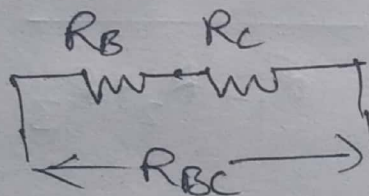 RB RC
RBC